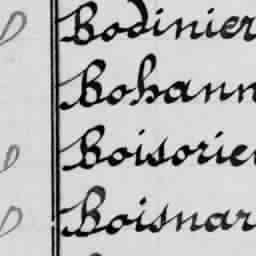 Bodinier
Bohann
Boisorie
Boisnar